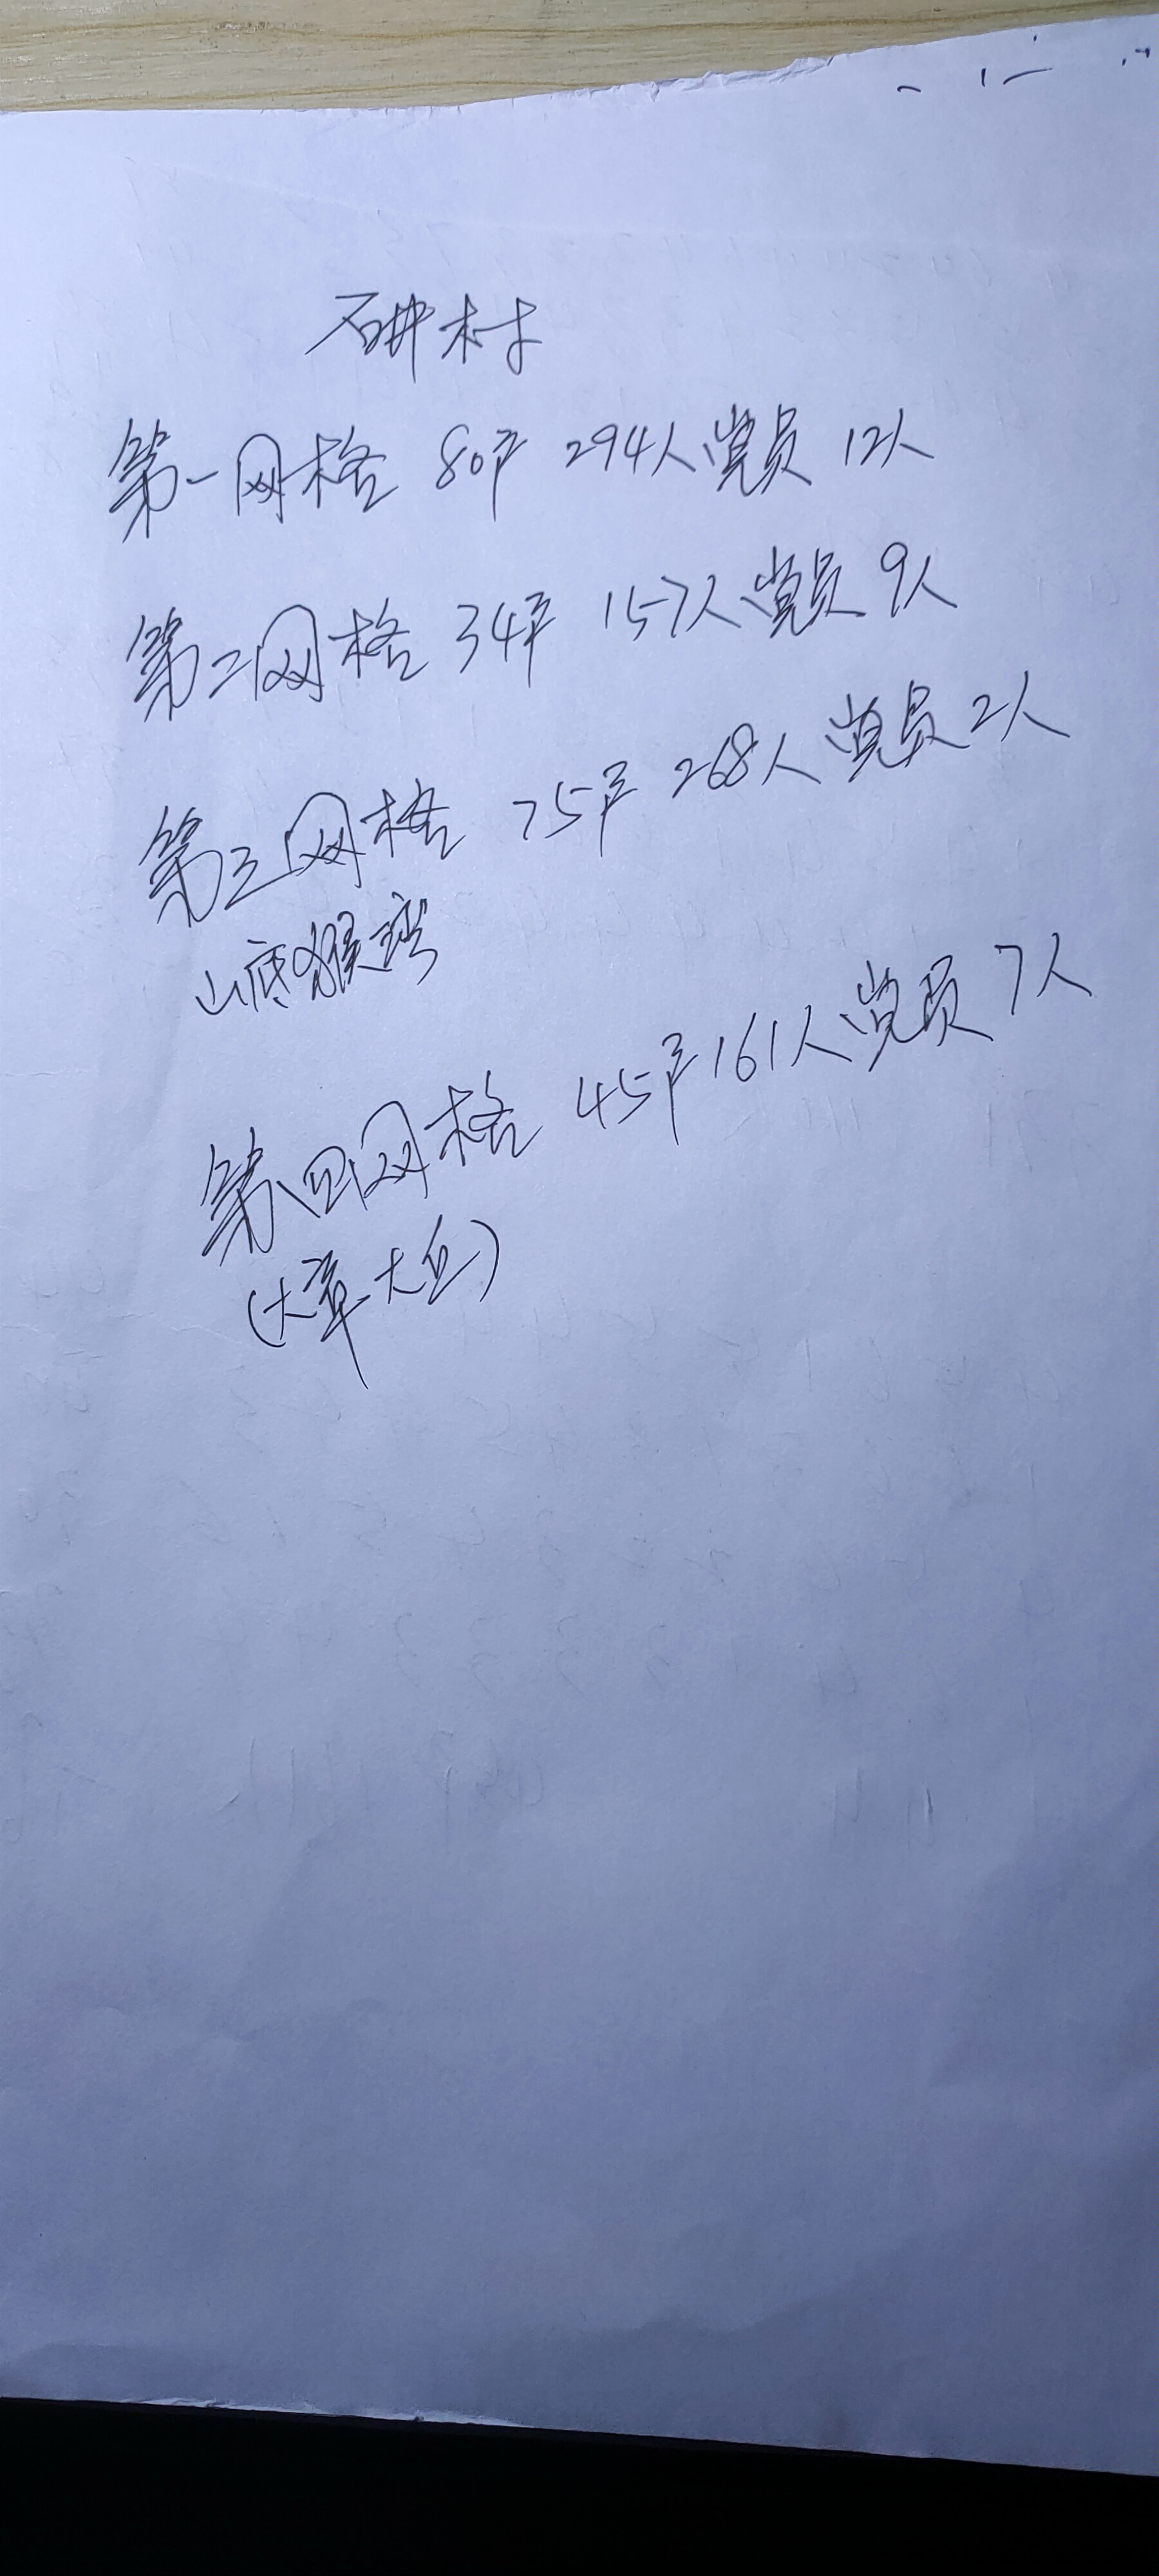 石井村
第一网格 80户 294人党员 12人
第二网格 34户 157人党员 9人
第三网格 75户 268人党员2人
山底猴湾
第四网格 45户161人党员 7人
(大章大丘)